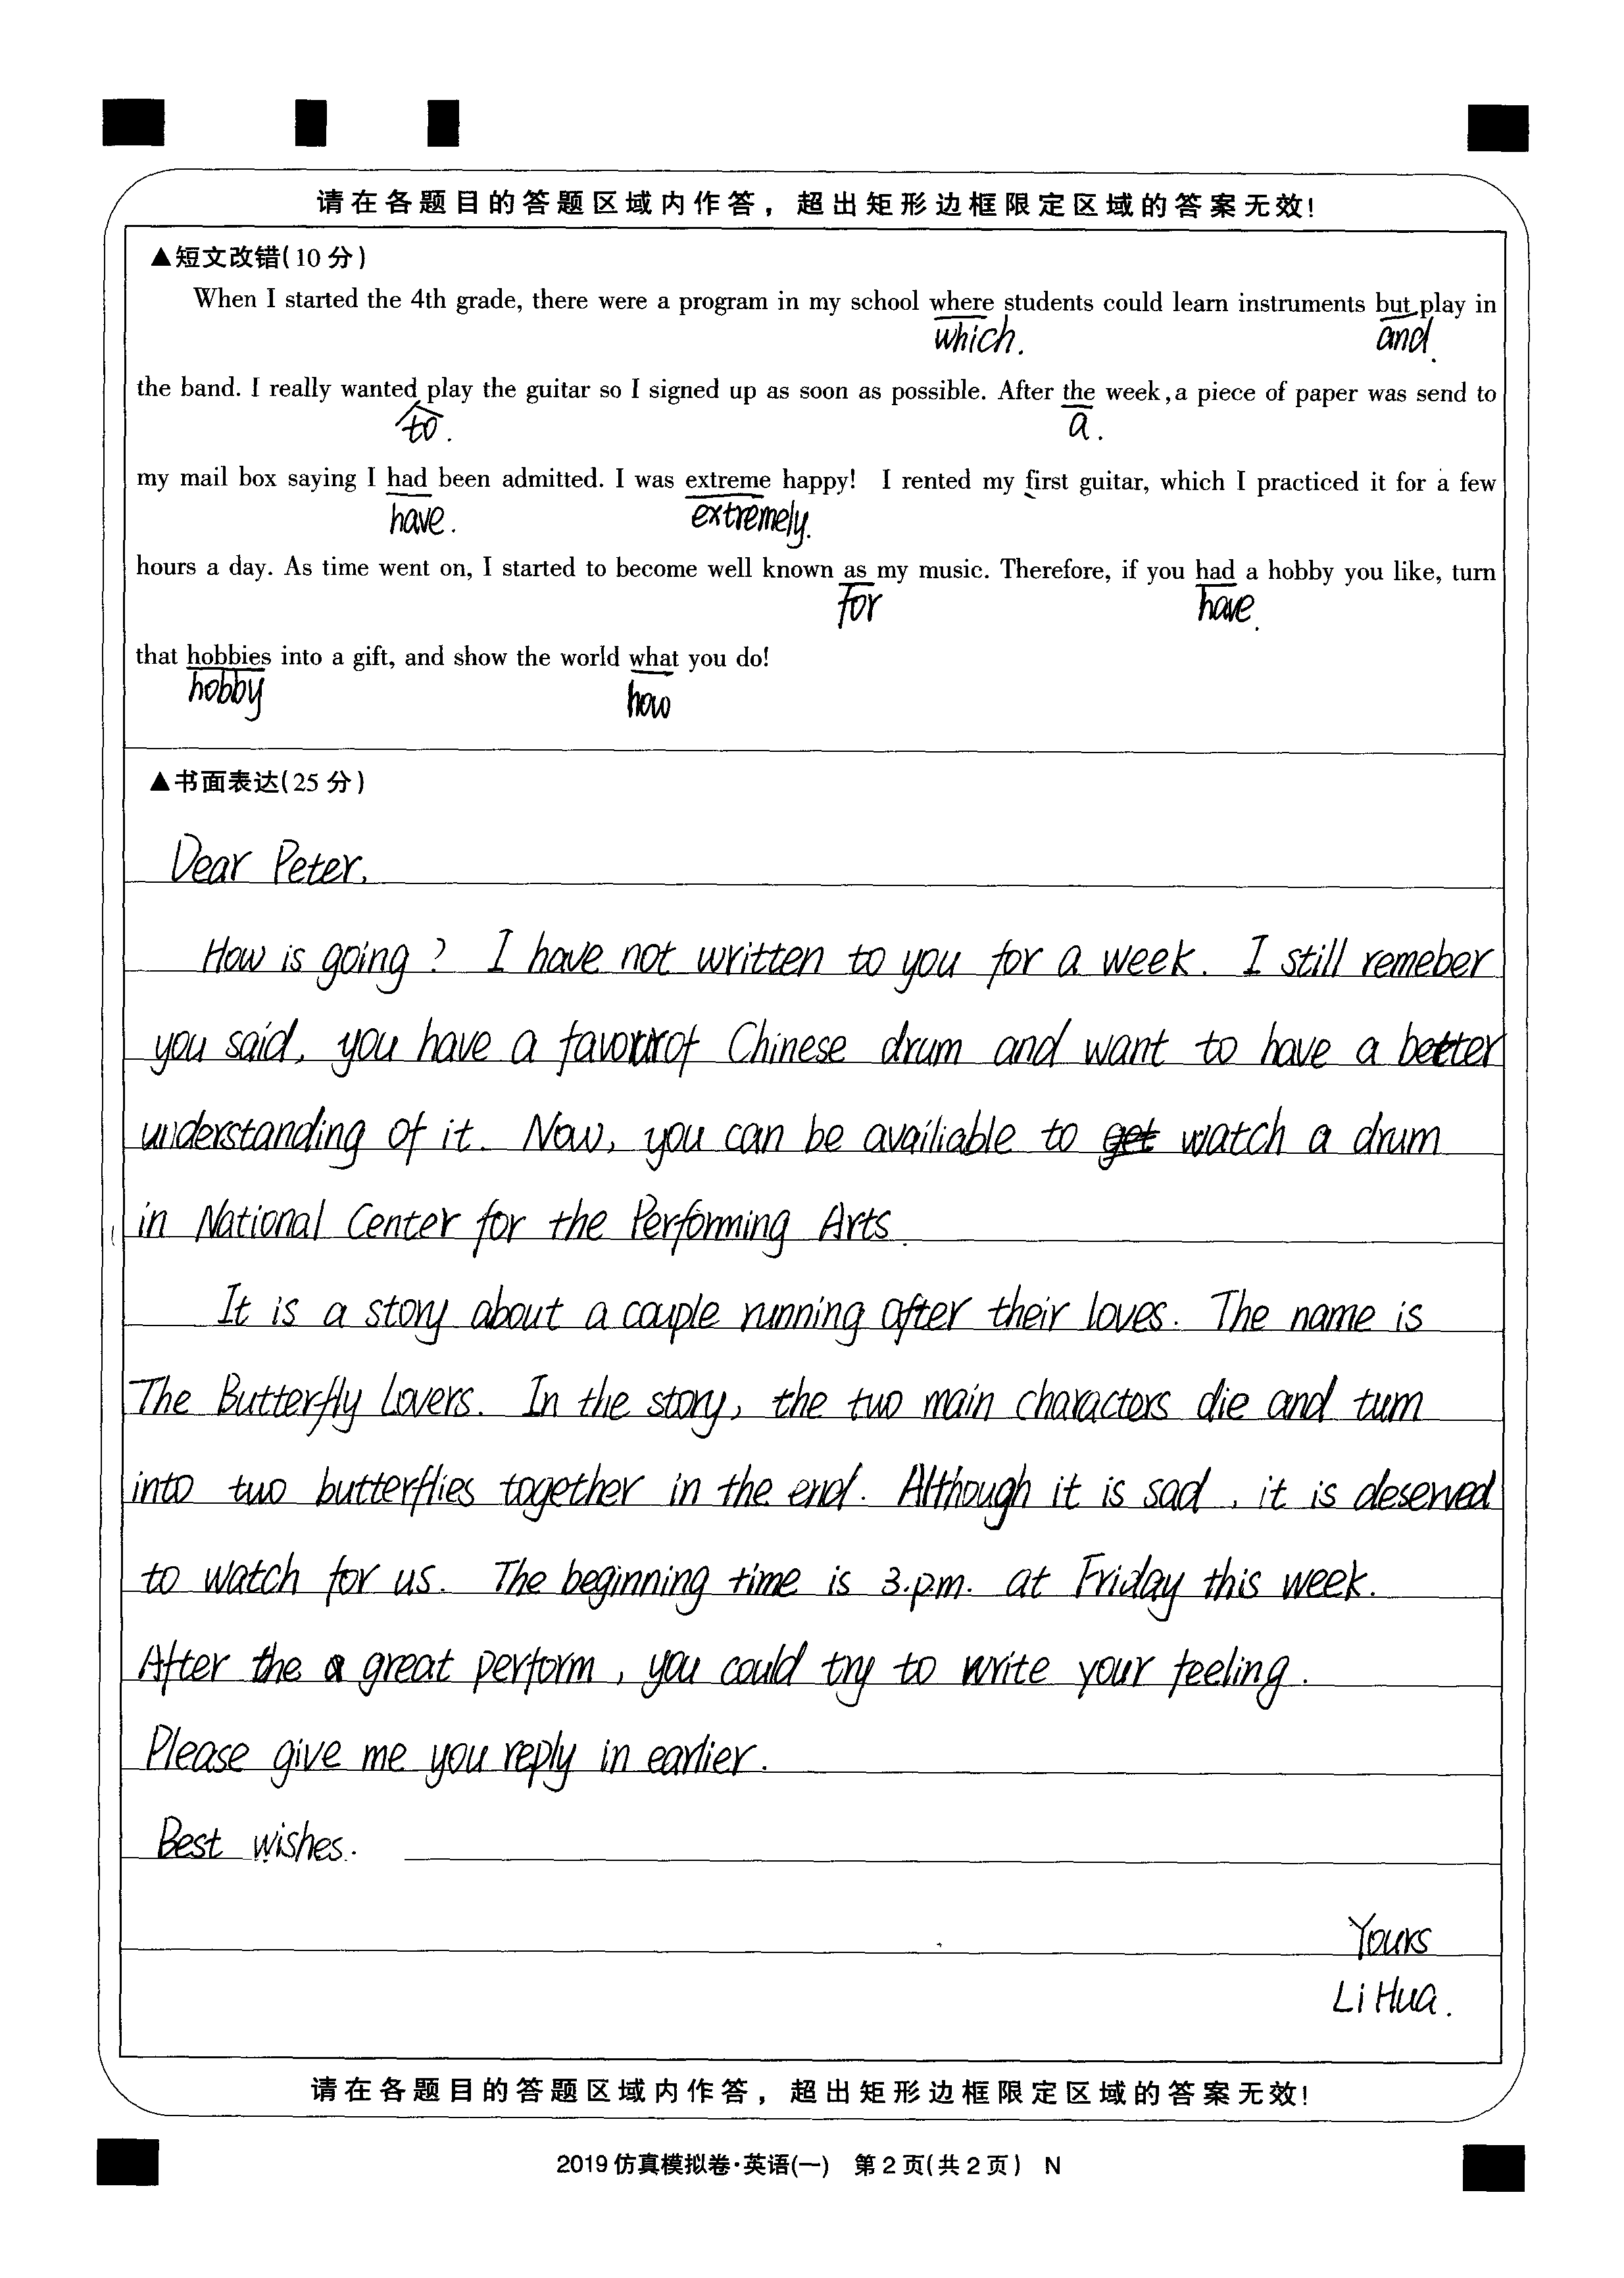 请在各题目的答题区域内作答，超出矩形边框限定区域的答案无效!
▲短文改错(10分)
When I started the 4th grade, there were a program in my school where students could learn instruments but play in
which. and.
the band. I really wanted play the guitar so I signed up as soon as possible. After the week,a piece of paper was send to
to. a.
my mail box saying I had been admitted. I was extreme happy! I rented my first guitar, which I practiced it for a few
have. extremely.
hours a day. As time went on, I started to become well known as my music. Therefore, if you had a hobby you like, turn
for have.
that hobbies into a gift, and show the world what you do!
hobby how
▲书面表达(25分)
Dear Peter,
How is going? I have not written to you for a week. I still remeber
you said, you have a of Chinese drum and want to have a better
understanding of it. Now, you can be availiable to get watch a drum
in National Center for the Performing Arts.
It is a story about a couple running after their loves. The name is
The Butterfly Lovers. In the story, the two main characters die and turn
into two butterflies together in the end. Although it is sad, it is deserved
to watch for us. The beginning time is 3.p.m. at Friday this week.
After the a great perform, you could try to write your feeling.
Please give me you reply in earlier.
Best wishes.
Yours
Li Hua.
请在各题目的答题区域内作答，超出矩形边框限定区域的答案无效!
2019仿真模拟卷·英语(一) 第2页(共2页) N